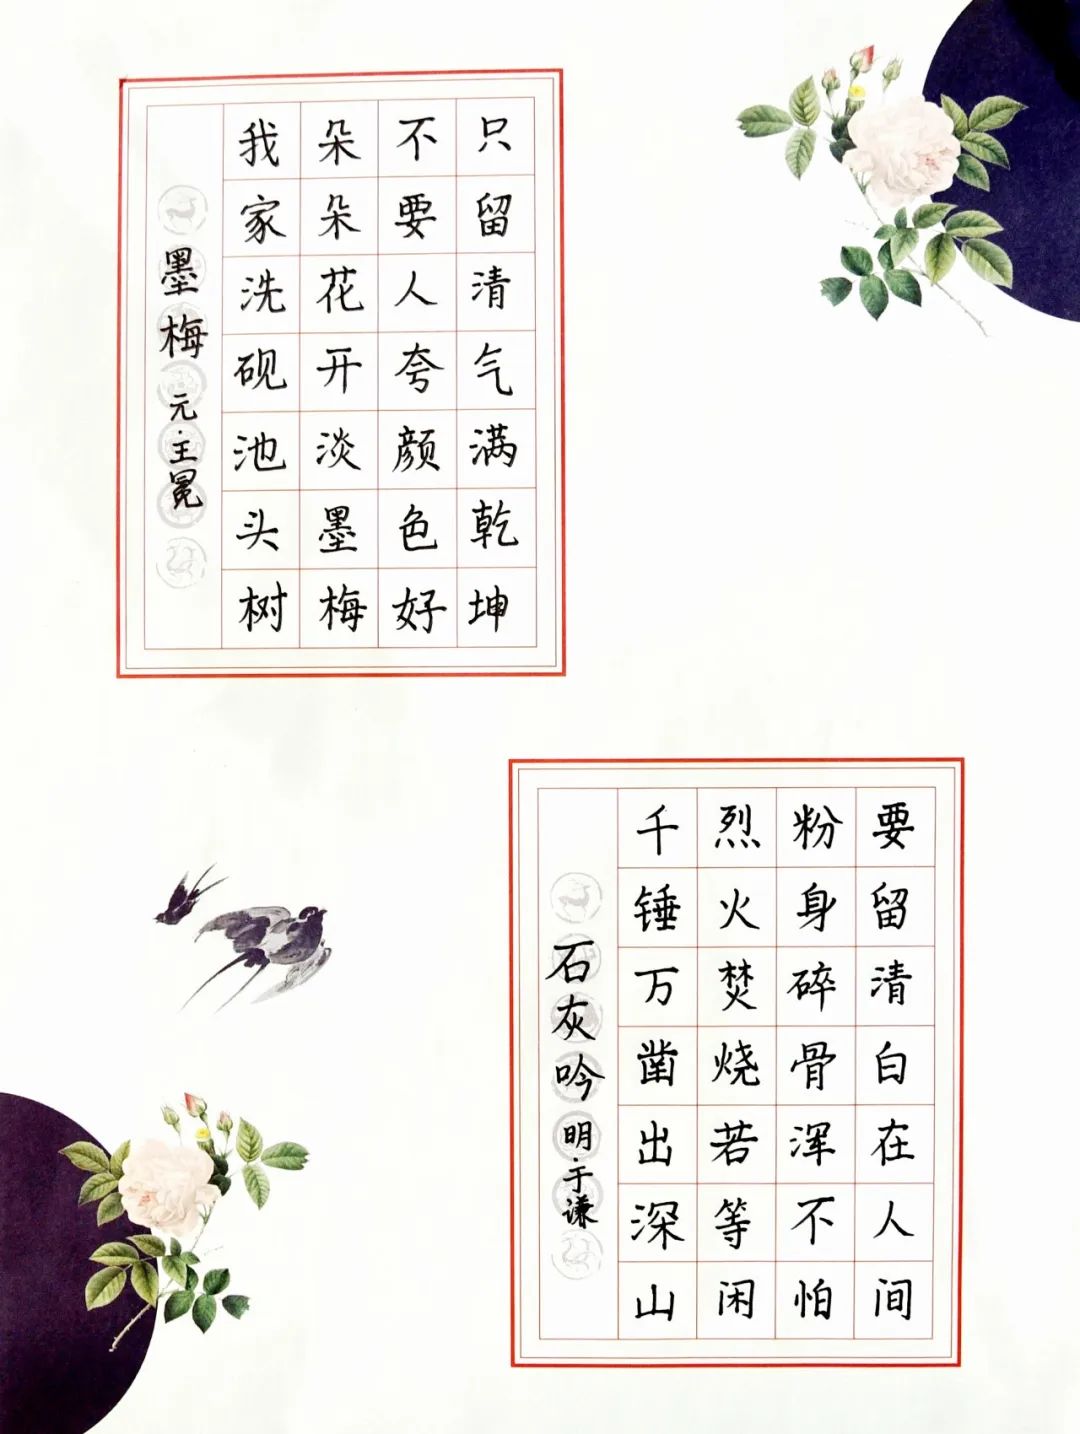 墨梅
元·王冕
我家洗砚池头树
朵朵花开淡墨梅
不要人夸颜色好
只留清气满乾坤
石灰吟
明·于谦
千锤万凿出深山
烈火焚烧若等闲
粉身碎骨浑不怕
要留清白在人间